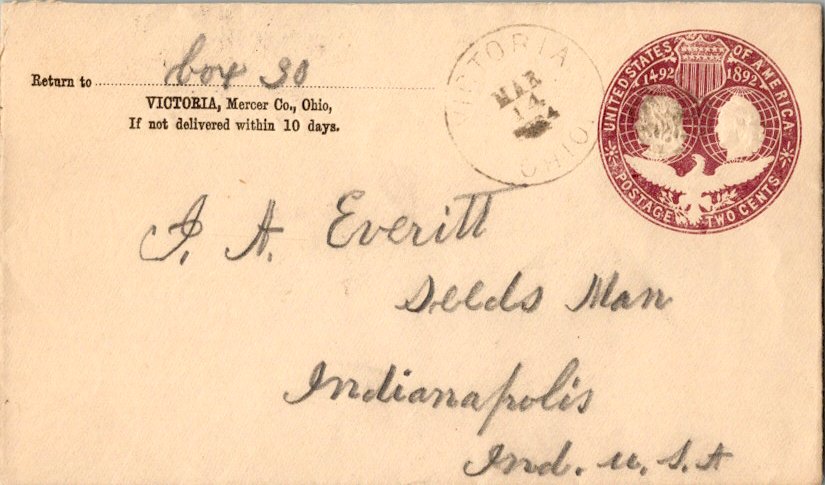 Return to box 30
VICTORIA, Mercer Co., Ohio,
If not delivered within 10 days.
VICTORIA
MAR
14
OHIO.
UNITED STATES OF AMERICA
1492 1892
POSTAGE TWO CENTS
J. A. Everitt
Seeds Man
Indianapolis
Ind. U. S. A